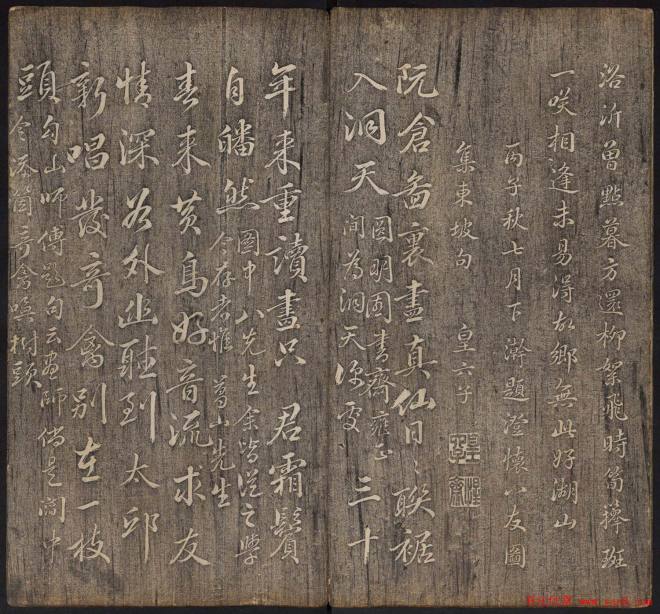 浴沂曾點暮方還柳絮飛時筍籜斑
一咲相逢未易得故鄉無此好湖山
丙子秋七月下澣題澄懷八友圖
集東坡句 皇六子
阮倉畗裏盡真仙日〻聯裾
入洞天 園明園書齋雍正 間為洞天深處 三十
年來重讀畫只君霜鬢
自皤然 園中八先生余皆從之學 今存者惟葛山先生
春來黃鳥好音流求友
情深谷外幽聽到太邱
新唱發奇禽別在一枝
頭 勾山師傅題句云畫師倘是閣中 令添箇奇禽喚樹頭